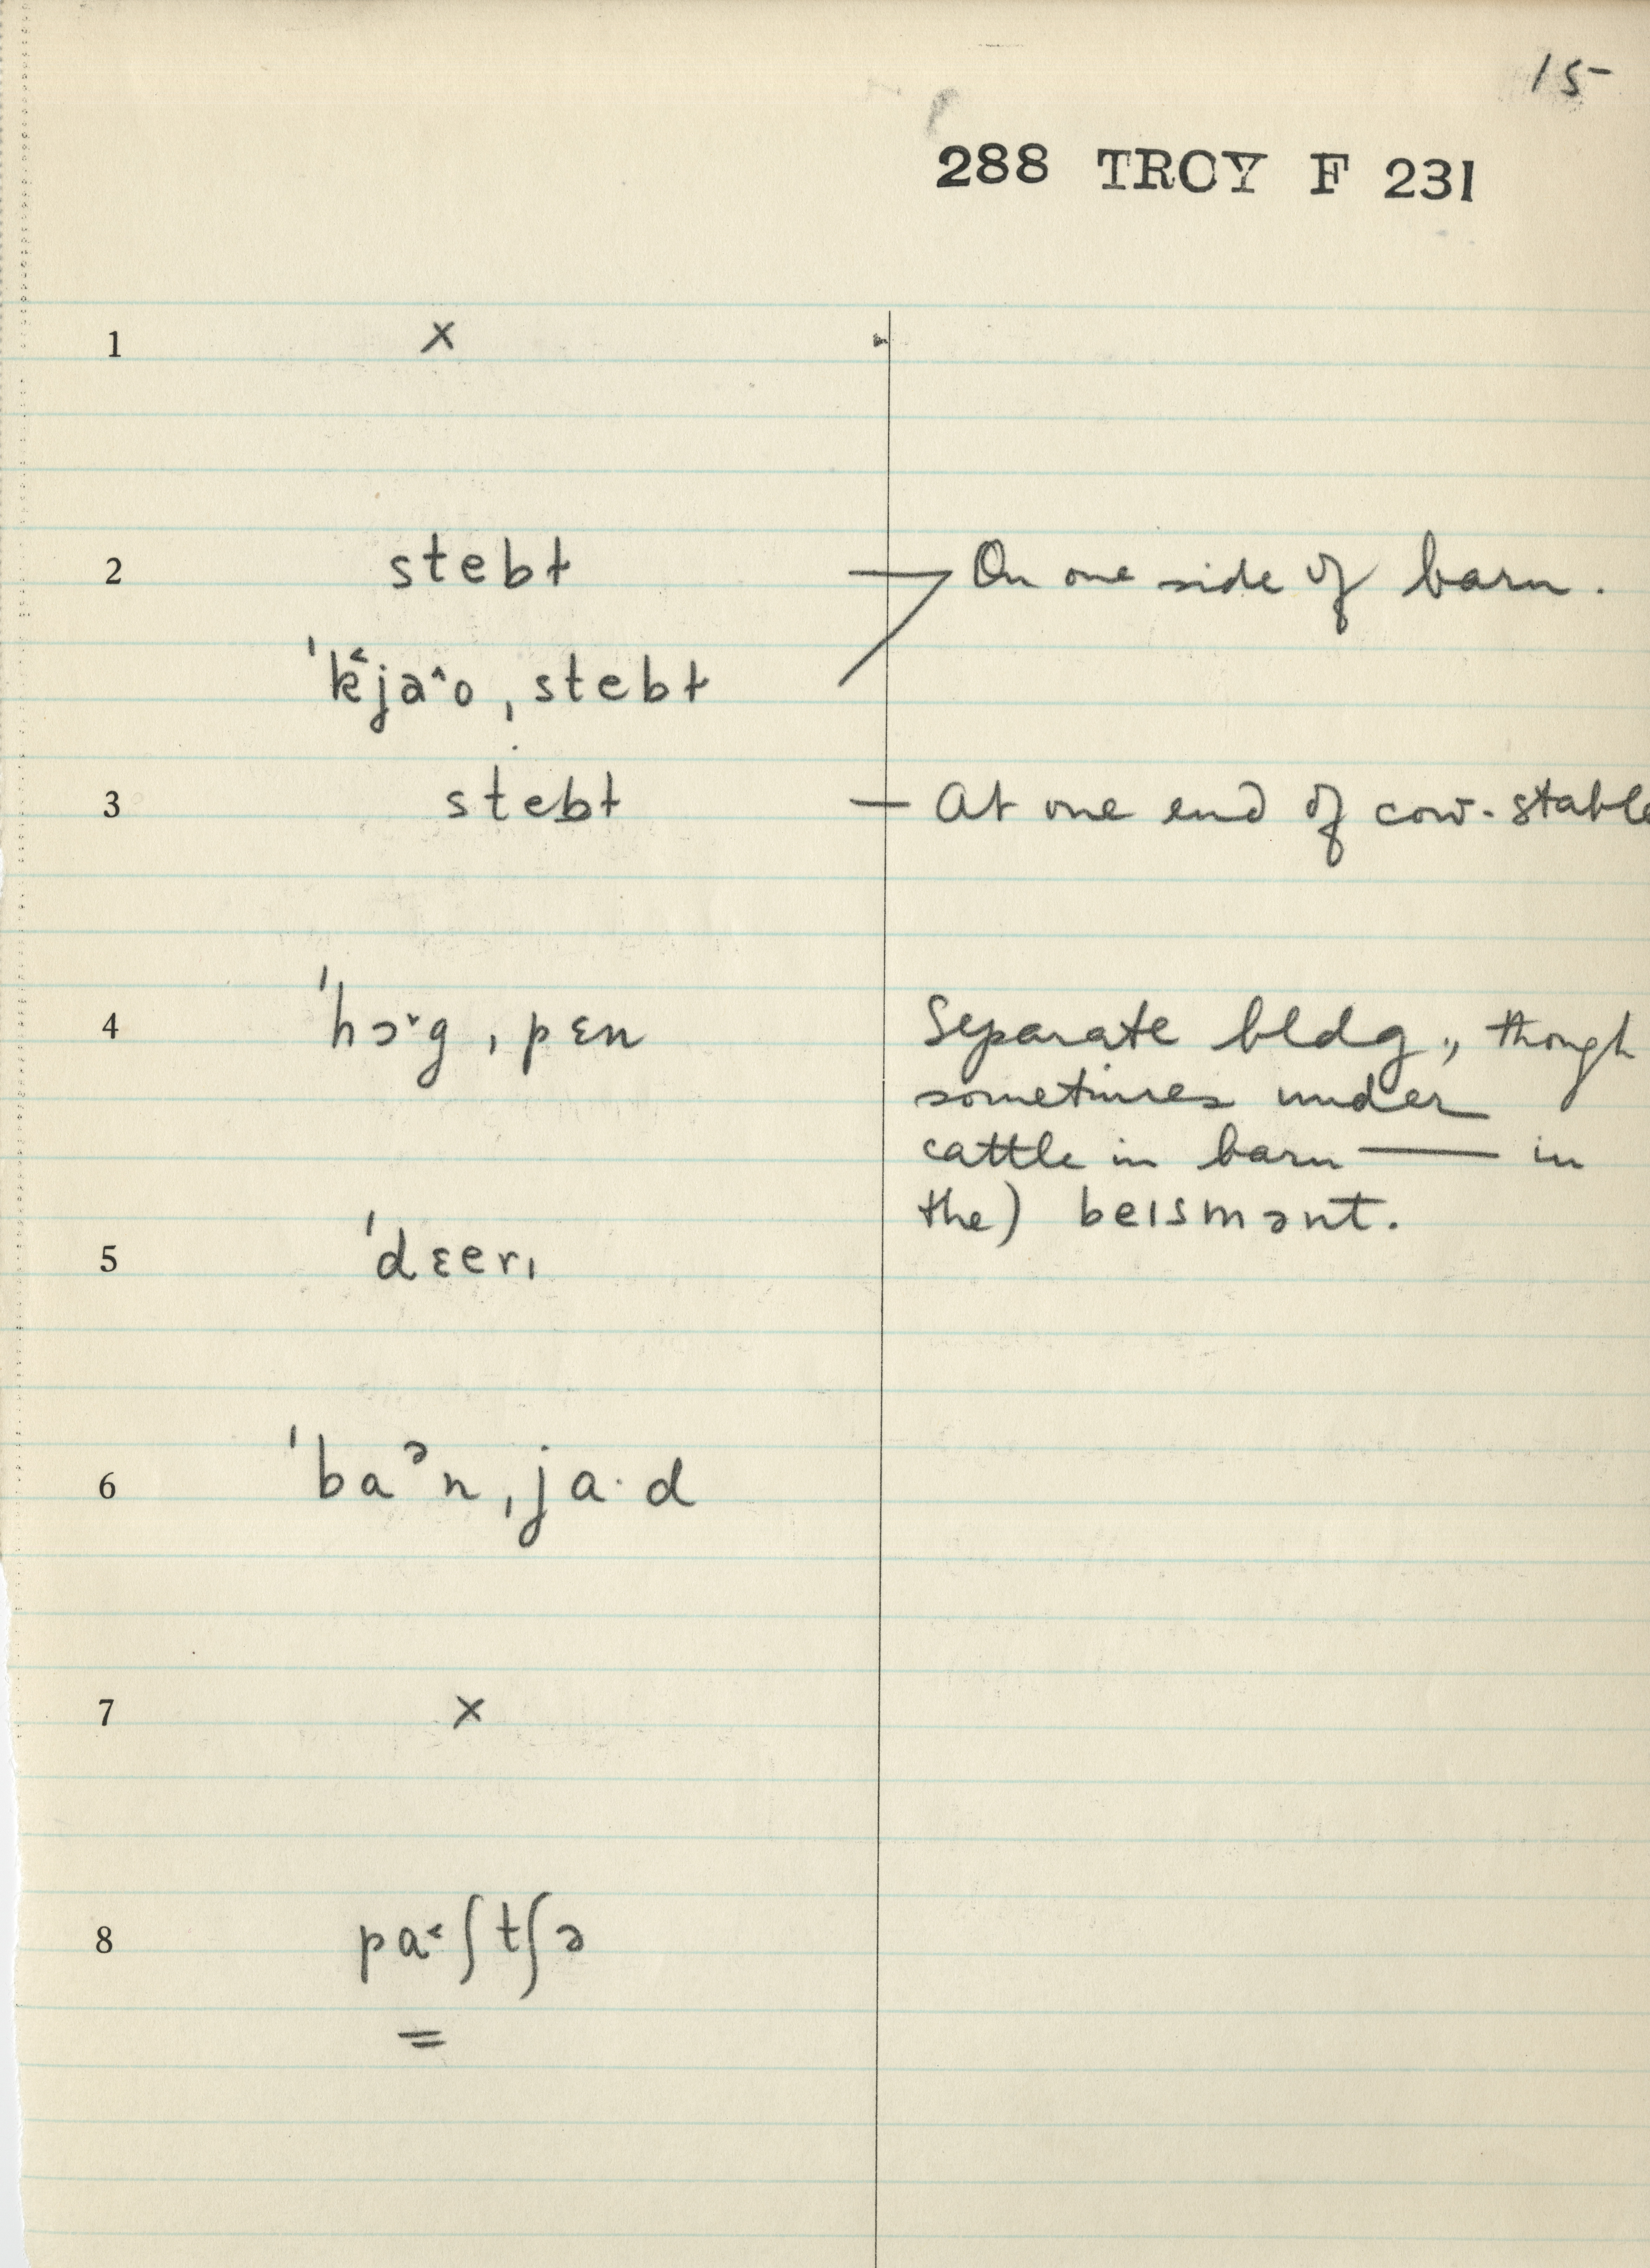 15
288 TROY F 231
1 ×
2 stebɫ — On one side of barn.
ˈk˂ja˄oˌstebɫ
3 stebɫ — At one end of cow-stable
4 ˈhɔ˅gˌpɛn Separate bldg., though
sometimes under
cattle in barn — in
the) beɪsmənt.
5 ˈdɛerɪ
6 ˈbaᵊnˌja·d
7 ×
8 pa˂ʃtʃə
=